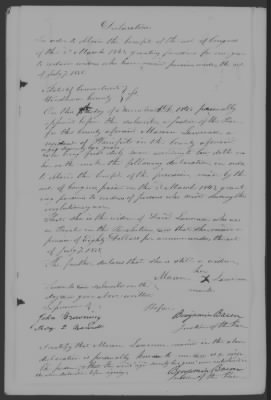 Declaration
In order to obtain the benefit of the act of Congress
of the 3d March 1843 granting pensions for one year
to certain widows who have received pensions under the act
of July 7, 1838.
State of Connecticut
Windham County } ss
On this 4th day of 1843 personally
appeared before the subscriber, a Justice of the Peace
for the County aforesaid Marcom Lawrence, a
resident of Plainfield in the County aforesaid
who being first duly sworn according to law doth on
her oath make the following declaration in order
to obtain the benefit of the provision made by the
act of Congress passed on the 3d March 1843 grant-
ing pensions to widows of persons who served during the
revolutionary war.
That she is the widow of David Lawrence who was
a Private in the Revolution and that she received a
pension of Eighty Dollars per annum under the act
of July 7, 1838.
She further declares that she is still a widow.
her
X Lawrence
mark
Sworn to and subscribed on the
day and year above written
before
In presence of
John Browning
Benjamin Bacon
Justice of the Peace
I certify that Lawrence named in the above
declaration is personally known to me
Benjamin Bacon
Justice of the Peace